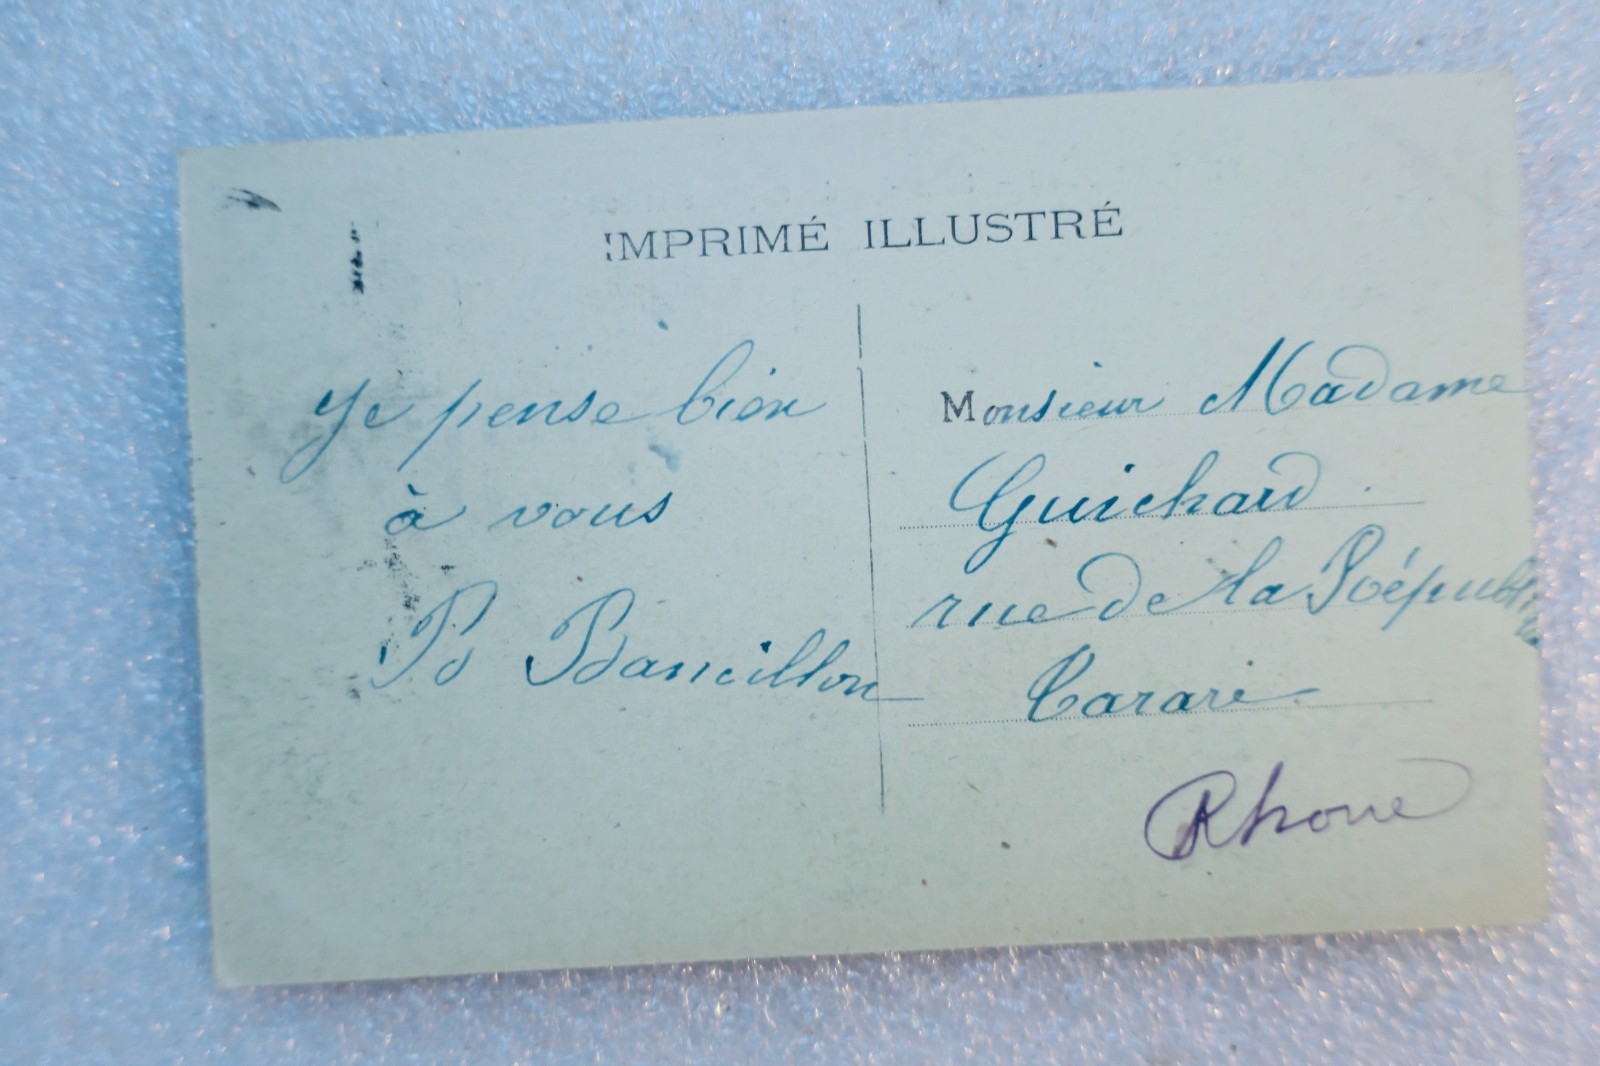 IMPRIMÉ ILLUSTRÉ
Je pense bien
à vous
Bancillon
Monsieur Madame
Guichard
rue de la République
Tarare
Rhone